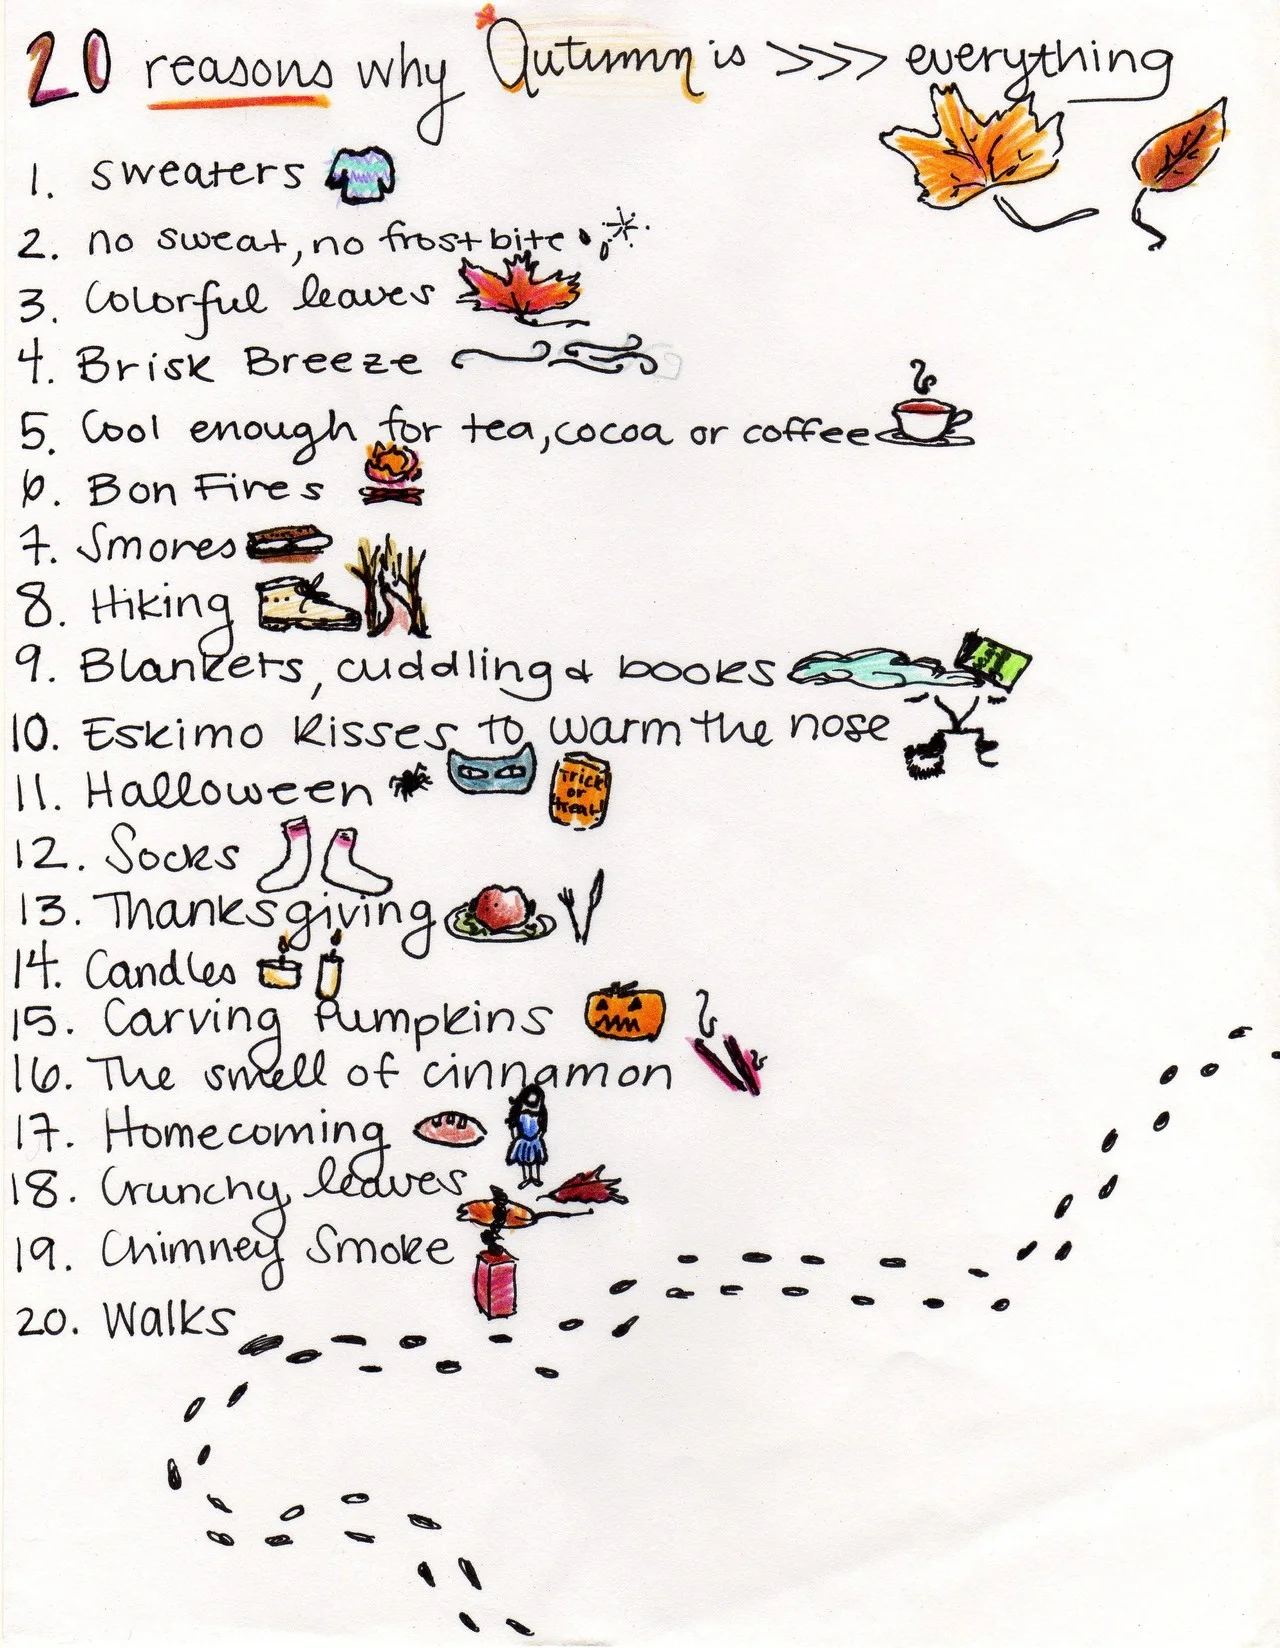 20 reasons why Autumn is >>> everything
1. sweaters
2. no sweat, no frostbite
3. Colorful leaves
4. Brisk Breeze
5. Cool enough for tea, cocoa or coffee
6. Bon Fires
7. Smores
8. Hiking
9. Blankets, cuddling & books
10. Eskimo kisses to warm the nose
11. Halloween
Trick
or
treat!
12. Socks
13. Thanksgiving
14. Candles
15. Carving Pumpkins
16. The smell of cinnamon
17. Homecoming
18. Crunchy leaves
19. Chimney Smoke
20. Walks